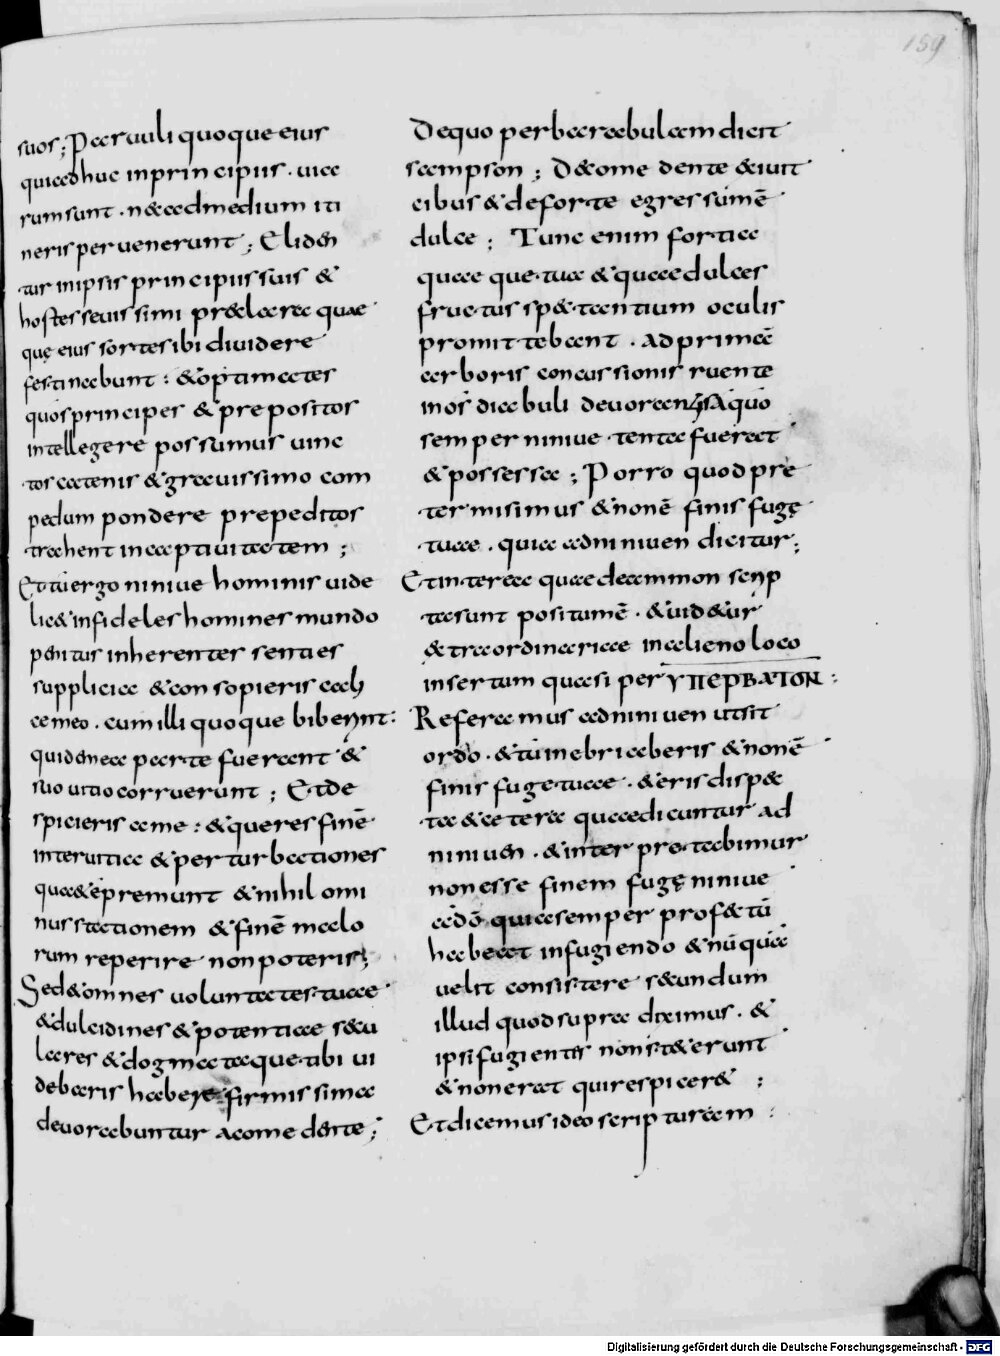 159
suos; Paruuli quoque eius
quiadhuc inprincipiis. uicc
rum sunt. n& ad medium iti
neris peruenerunt; Eliden
tur inipsis principiis suis &
hostes seuissimi praeclarae quae
quę eius sortes ibi diuidere
festinabunt: & optimates
quos principes & prepositos
intellegere possumus uinc
tos catenis & grauissimo com
pedum pondere prepeditos
trahent incaptiuitatem;
Et tu ergo niniue hominis uide
lic& infideles homines mundo
penitus inherentes senties
supplicia & consopieris cali
ce meo. cum illi quoque biberint:
qui dmea parte fuerant &
suo uitio corruerunt; Et de
spicieris a me: & queres finē
inter uitia & perturbationes
quae te premunt & nihil omi
nus stationem & finē malo
rum reperire non poteris;
Sed & omnes uoluntates tuae
& dulcidines & potentiae secu
lares & dogmata que tibi ui
deberis habere firmissima
deuorabuntur a comedente;
De quo per parabulam dicit
sampson; D& comedente exiuit
cibus & de forte egressum ē
dulce; Tunc enim fortia
quaeque tua & quae dulces
fructus spectantium oculis
promittebant. ad primā
arboris concussionis ruent
in os diabuli deuorant; A quo
semper niniue tenta fuerat
& possessa; Porro quod pre
termisimus & non ē finis fugę
tuae. quia ad niniuen dicitur;
Et interea quae de ammon scrip
ta sunt positum ē. & uidetur
extraordinaria in alieno loco
insertum quasi per ΥΠΕΡΒΑΤΟΝ:
Referamus ad niniuen ut sit
ordo. & tu inebriaberis & non ē
finis fuge tuae. & eris dispec
ta & cetera quae dicuntur ad
niniuen. & interpretabimur
non esse finem fugę niniue
ad dō quia semper profectū
habeat in fugiendo & nūquā
uelit consistere secundum
illud quod supra diximus. &
ipsi fugientes non steterunt
& non erat qui respicer&;
Et dicemus ideo scripturam:
Digitalisierung gefördert durch die Deutsche Forschungsgemeinschaft - DFG